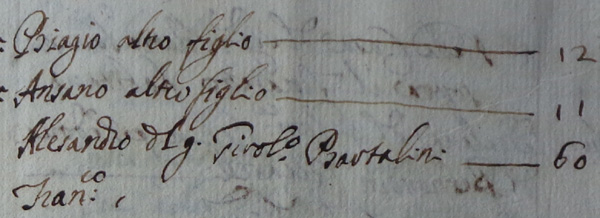 Biagio altro figlio 12
Ansano altro figlio 11
Alesandro del q. Girol.o Bartalini 60
Fran.co